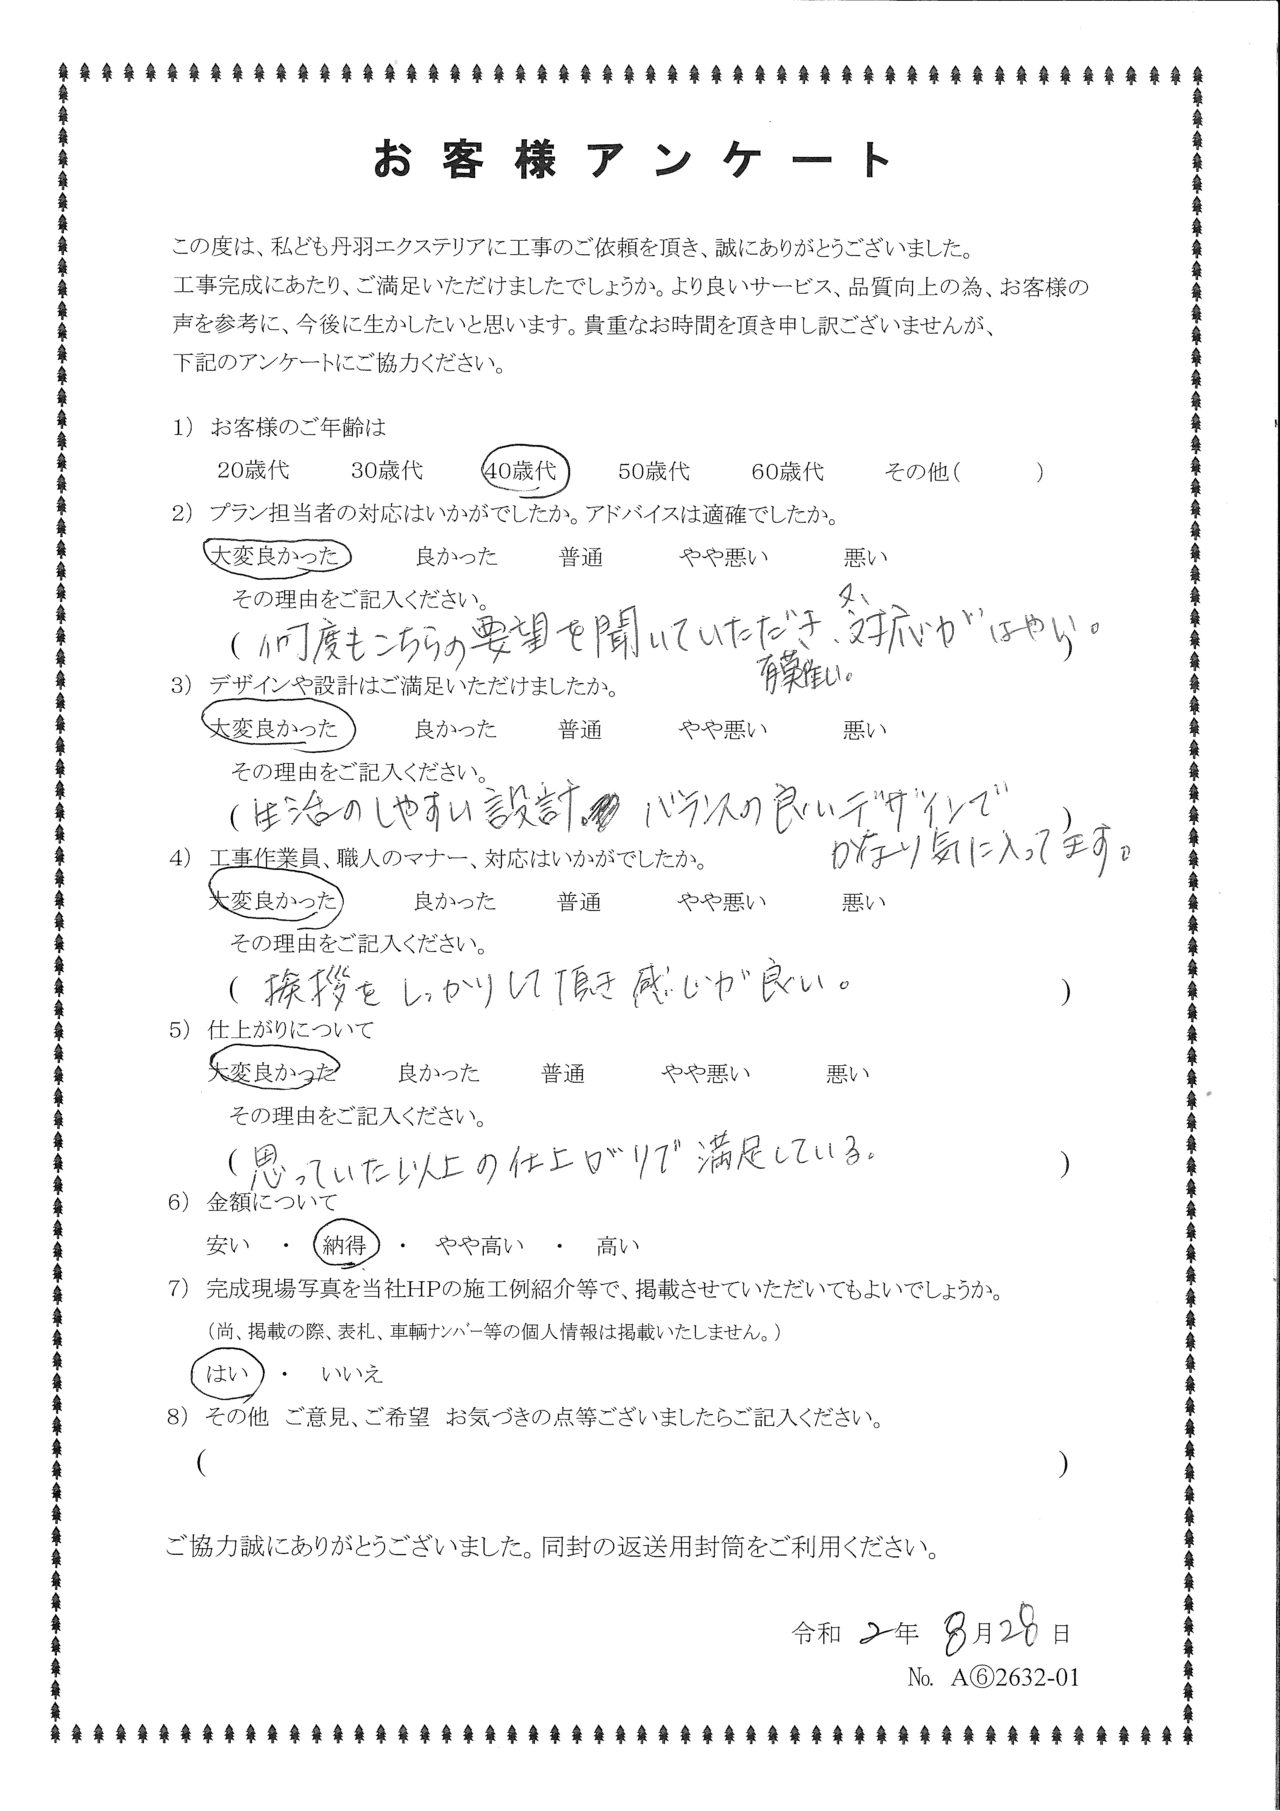 お客様アンケート
この度は、私ども丹羽エクステリアに工事のご依頼を頂き、誠にありがとうございました。
工事完成にあたり、ご満足いただけましたでしょうか。より良いサービス、品質向上の為、お客様の
声を参考に、今後に生かしたいと思います。貴重なお時間を頂き申し訳ございませんが、
下記のアンケートにご協力ください。
1) お客様のご年齢は
20歳代 30歳代 40歳代 50歳代 60歳代 その他( )
2) プラン担当者の対応はいかがでしたか。アドバイスは適確でしたか。
大変良かった 良かった 普通 やや悪い 悪い
その理由をご記入ください。
(何度もこちらの要望を聞いていただき、又、対応がはやい。)
有難い。
3) デザインや設計はご満足いただけましたか。
大変良かった 良かった 普通 やや悪い 悪い
その理由をご記入ください。
(生活のしやすい設計。バランスの良いデザインで)
かなり気に入ってます。
4) 工事作業員、職人のマナー、対応はいかがでしたか。
大変良かった 良かった 普通 やや悪い 悪い
その理由をご記入ください。
(挨拶をしっかりして頂き感じが良い。)
5) 仕上がりについて
大変良かった 良かった 普通 やや悪い 悪い
その理由をご記入ください。
(思っていた以上の仕上がりで満足している。)
6) 金額について
安い ・ 納得 ・ やや高い ・ 高い
7) 完成現場写真を当社HPの施工例紹介等で、掲載させていただいてもよいでしょうか。
(尚、掲載の際、表札、車輌ナンバー等の個人情報は掲載いたしません。)
はい ・ いいえ
8) その他 ご意見、ご希望 お気づきの点等ございましたらご記入ください。
( )
ご協力誠にありがとうございました。同封の返送用封筒をご利用ください。
令和 2年 8月28日
№ A⑥2632-01